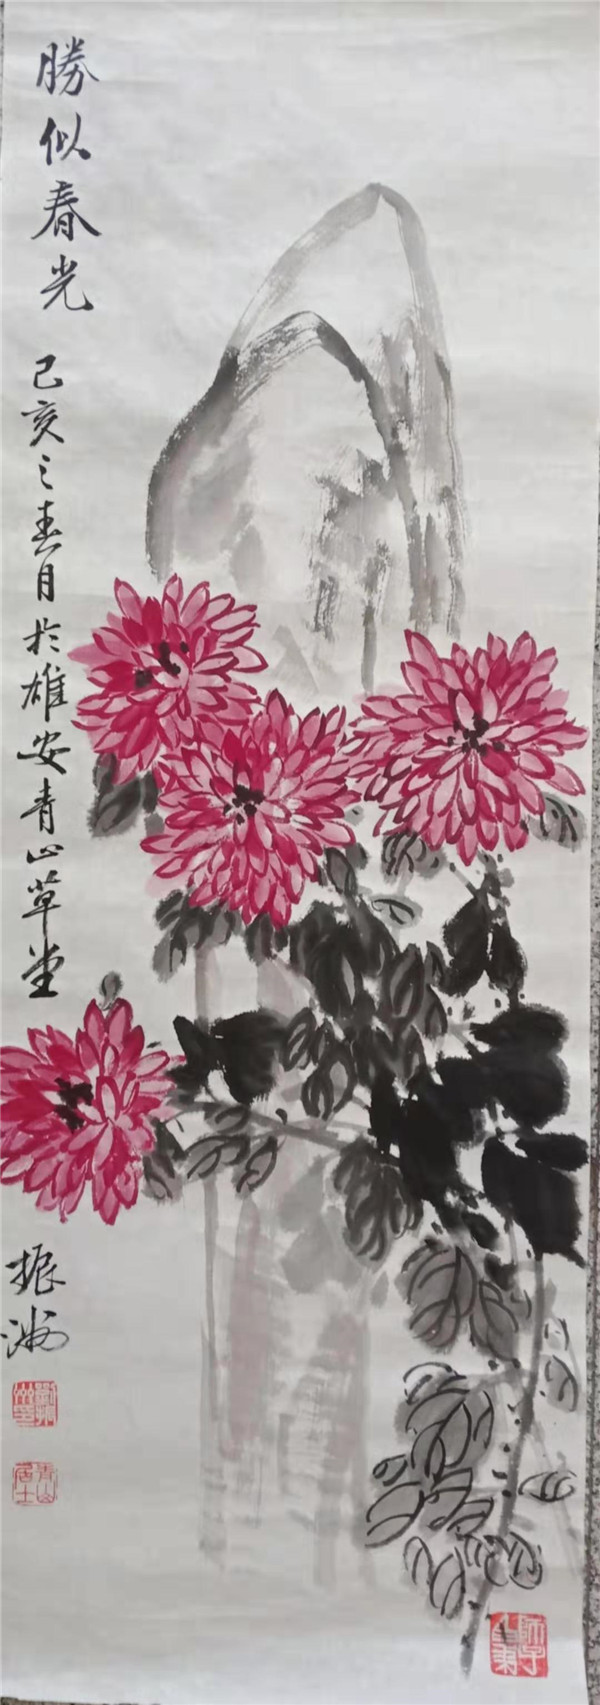 勝似春光
己亥之春月於雄安青山草堂
振洲
青山居士